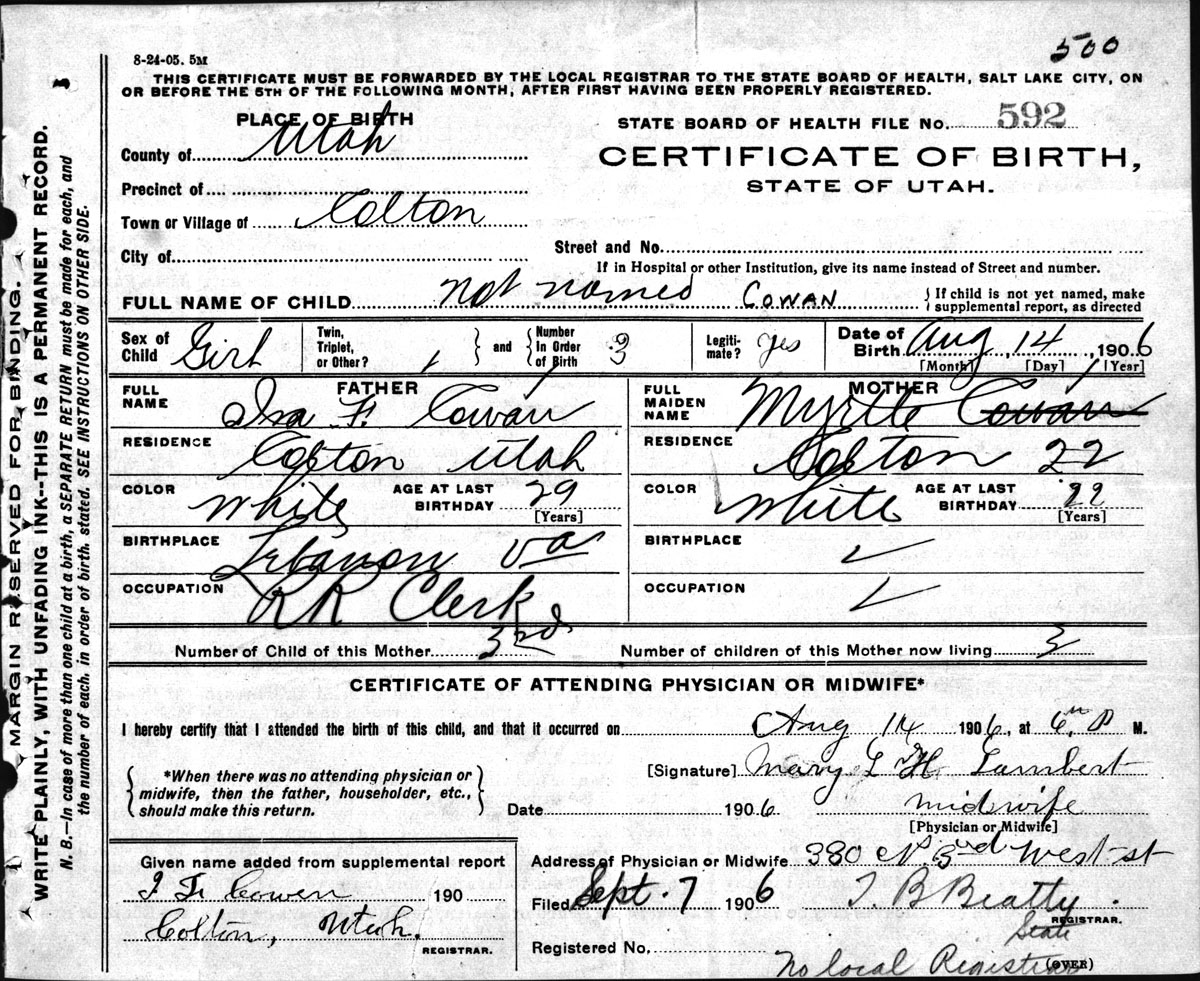 500
8-24-05. 5M
THIS CERTIFICATE MUST BE FORWARDED BY THE LOCAL REGISTRAR TO THE STATE BOARD OF HEALTH, SALT LAKE CITY, ON
OR BEFORE THE 5TH OF THE FOLLOWING MONTH, AFTER FIRST HAVING BEEN PROPERLY REGISTERED.
MARGIN RESERVED FOR BINDING.
WRITE PLAINLY, WITH UNFADING INK--THIS IS A PERMANENT RECORD.
N. B.—In case of more than one child at a birth, a SEPARATE RETURN must be made for each, and
the number of each, in order of birth, stated. SEE INSTRUCTIONS ON OTHER SIDE.
PLACE OF BIRTH
County of Utah
Precinct of
Town or Village of Colton
City of
STATE BOARD OF HEALTH FILE No. 592
CERTIFICATE OF BIRTH,
STATE OF UTAH.
Street and No.
If in Hospital or other Institution, give its name instead of Street and number.
FULL NAME OF CHILD not named COWAN { If child is not yet named, make
supplemental report, as directed
Sex of Child Girl
Twin, Triplet, or Other? } and { Number In Order of Birth 3
Legiti- mate? Yes
Date of Birth Aug 14, 1906
[Month] [Day] [Year]
FATHER
FULL NAME Ira F. Cowan
RESIDENCE Colton Utah
COLOR White AGE AT LAST BIRTHDAY 29
[Years]
BIRTHPLACE Lebanon Va
OCCUPATION RR Clerk
MOTHER
FULL MAIDEN NAME Myrtle Cowan
RESIDENCE Colton 22
COLOR White AGE AT LAST BIRTHDAY 22
[Years]
BIRTHPLACE ✓
OCCUPATION ✓
Number of Child of this Mother 3rd Number of children of this Mother now living 3
CERTIFICATE OF ATTENDING PHYSICIAN OR MIDWIFE*
I hereby certify that I attended the birth of this child, and that it occurred on Aug 14 1906, at 6 P M.
{ *When there was no attending physician or
midwife, then the father, householder, etc.,
should make this return. }
[Signature] Mary L H. Lambert
Date 1906 midwife
[Physician or Midwife]
Given name added from supplemental report
I F Cowen 190
Colton, Utah.
REGISTRAR.
Address of Physician or Midwife 380 N. 3rd West st
Filed Sept. 7 1906 T. B Beatty.
REGISTRAR.
State
Registered No.
No local Registrar
(OVER)